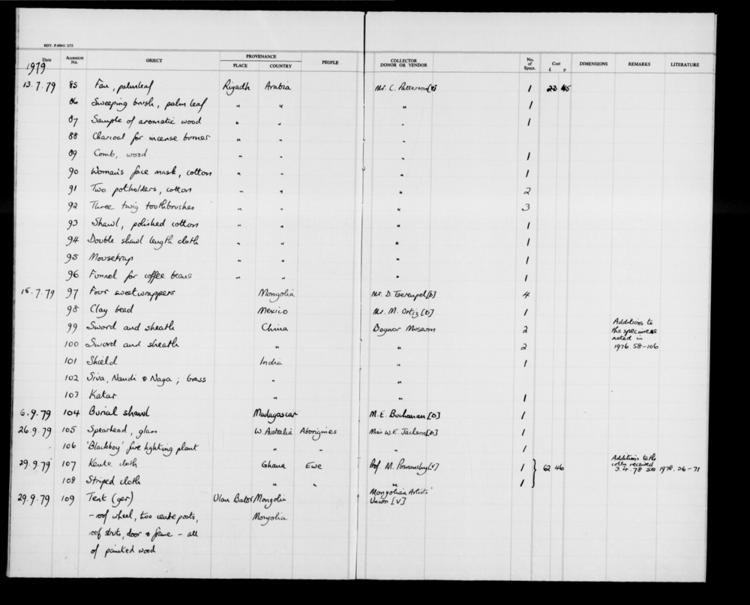 REV. P.6861 3/73
Date Accession No. OBJECT PROVENANCE PLACE COUNTRY PEOPLE COLLECTOR DONOR OR VENDOR No. of Specs. Cost £ P DIMENSIONS REMARKS LITERATURE
1979
13.7.79 85 Fan, palm leaf Riyadh Arabia Mr. C. Patterson 1 22 45
86 Sweeping brush, palm leaf " " " 1
87 Sample of aromatic wood " " " 1
88 Charcoal for incense burner " " "
89 Comb, wood " " " 1
90 Woman's face mask, cotton " " " 1
91 Two potholders, cotton " " " 2
92 Three twig toothbrushes " " " 3
93 Shawl, polished cotton " " " 1
94 Double shawl length cloth " " " 1
95 Mousetrap " " " 1
96 Funnel for coffee beans " " " 1
15.7.79 97 Four sweet wrappers Mongolia Mr. D. [D] 4
98 Clay bead Mexico Mr. M. Ortiz [D] 1
99 Sword and sheath China Bagnor Museum 2 Additions to the specimens noted in
100 Sword and sheath " " 2 1976 58-106
101 Shield India " 1
102 Siva, Nandi & Naga; brass " "
103 Katar " " 1
6.9.79 104 Burial shawl Madagascar M.E. Buchanan [D] 1
26.9.79 105 Spearhead, glass W. Australia Aborigines Miss W.E. Jackson [D] 1
106 'Blackboy' fire lighting plant " " " 1
29.9.79 107 Kente cloth Ghana Ewe Prof. M. [V] 1 } 62 46 Additions to the coll received 3.4.78 see 1978. 26-71
108 Striped cloth " " " 1
29.9.79 109 Tent (ger) Ulan Bator Mongolia Mongolian Artists' Union [V]
- roof wheel, two posts, Mongolia
roof struts, door & frame - all
of painted wood